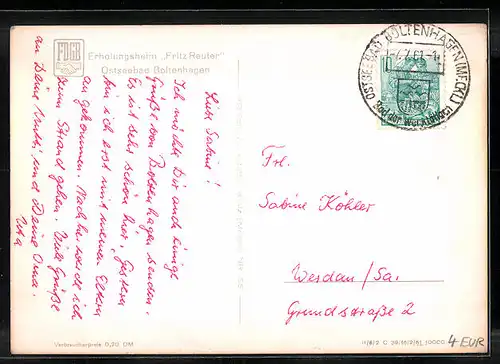 FDGB
Erholungsheim „Fritz Reuter"
Ostseebad Boltenhagen
Liebe Sabine!
Ich möchte Dir auch einige
Grüße von Boltenhagen senden.
Es ist sehr schön hier. Gestern
bin ich erst mit meinen Eltern
angekommen. Nachher werde ich
zum Strand gehen. Viele Grüße
an Deine Mutti und Deine Oma.
Uta
Verbraucherpreis 0,20 DM
OSTSEEBAD BOLTENHAGEN (MECKL)
Bad der Werktätigen
10
Frl.
Sabine Köhler
Werdau/Sa.
Grundstraße 2
4 EUR